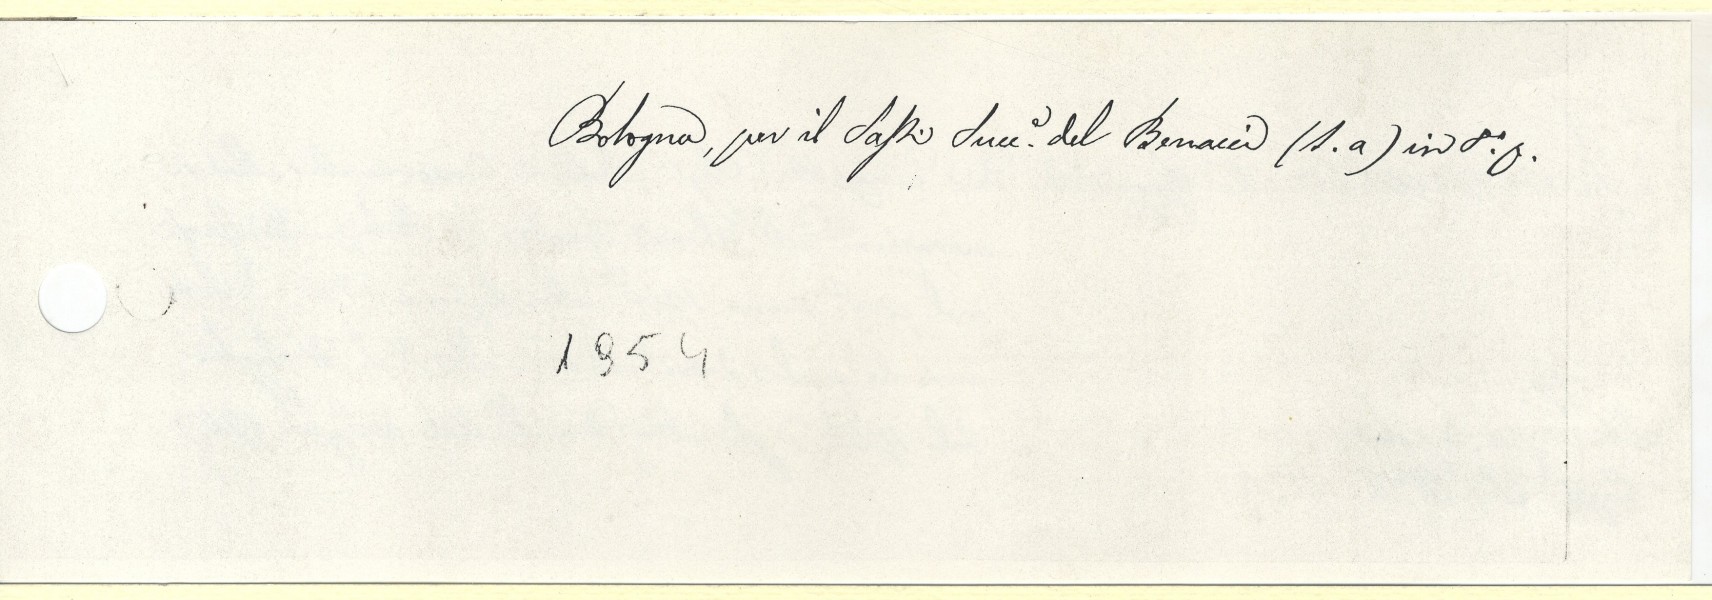 Bologna, per il Sassi Succ.e del Benacci (s.a) in 8.° p.
1954